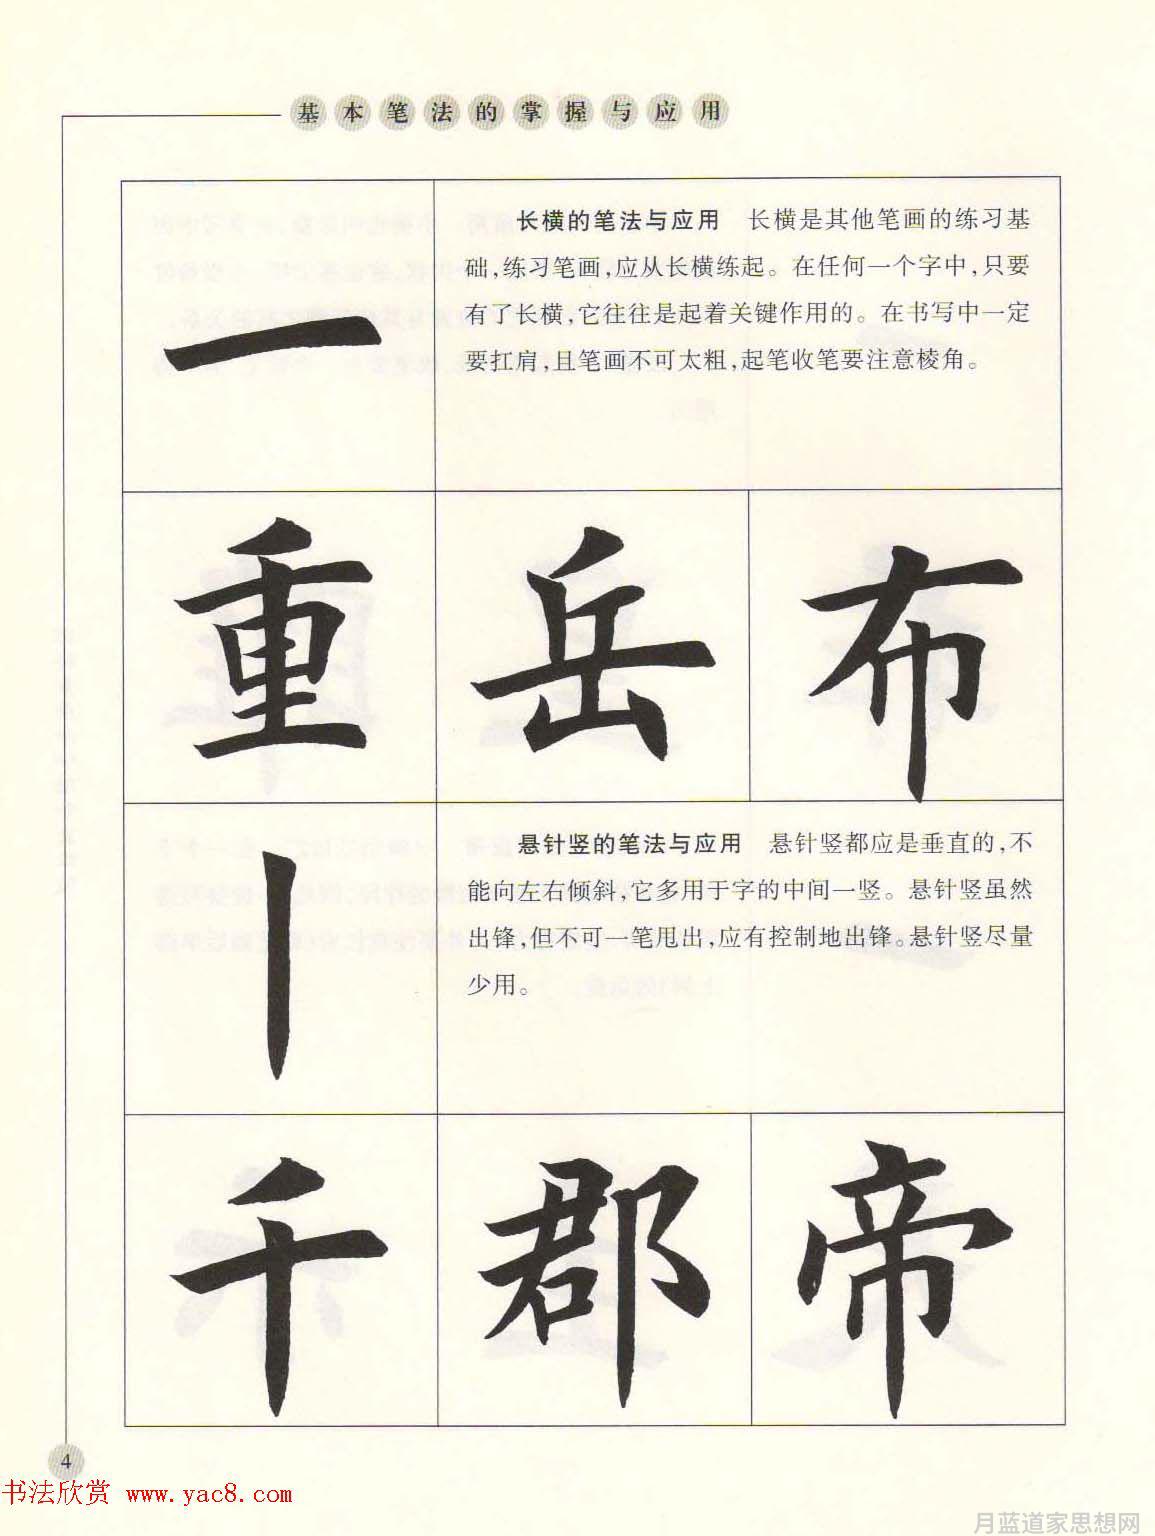 基本笔法的掌握与应用
一
长横的笔法与应用　长横是其他笔画的练习基
础,练习笔画,应从长横练起。在任何一个字中,只要
有了长横,它往往是起着关键作用的。在书写中一定
要扛肩,且笔画不可太粗,起笔收笔要注意棱角。
重 岳 布
丨
悬针竖的笔法与应用　悬针竖都应是垂直的,不
能向左右倾斜,它多用于字的中间一竖。悬针竖虽然
出锋,但不可一笔甩出,应有控制地出锋。悬针竖尽量
少用。
千 郡 帝
4
书法欣赏 www.yac8.com
月蓝道家思想网